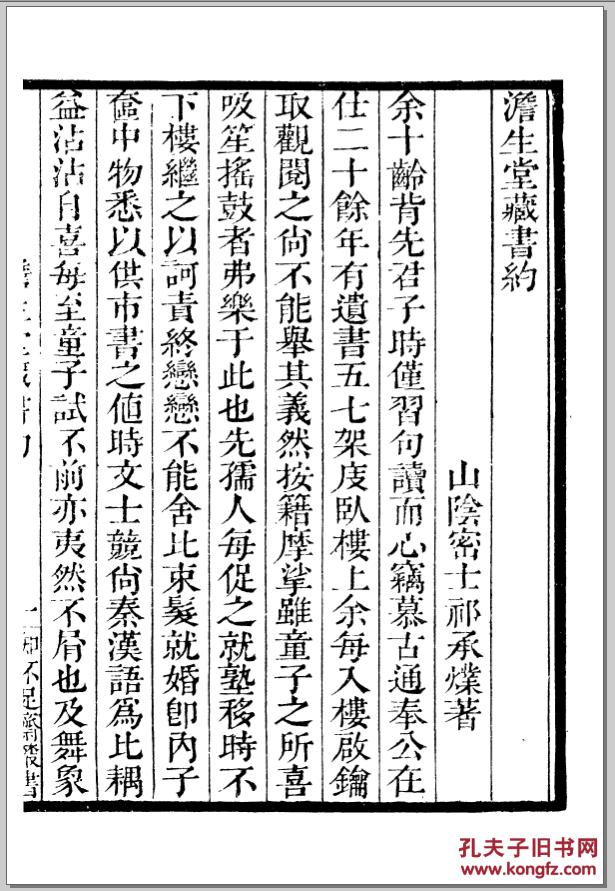 澹生堂藏書約
山陰密士祁承㸁著
余十齡背先君子時僅習句讀而心竊慕古通奉公在
仕二十餘年有遺書五七架庋臥樓上余每入樓啟鑰
取觀閱之尙不能舉其義然按籍摩挲雖童子之所喜
吸笙搖鼓者弗樂于此也先孺人每促之就塾移時不
下樓繼之以訶責終戀戀不能舍比束髮就婚卽內子
奩中物悉以供市書之値時文士競尙秦漢語爲比耦
益沾沾自喜每至童子試不前亦夷然不屑也及舞象
知不足齋叢書
孔夫子旧书网
www.kongfz.com